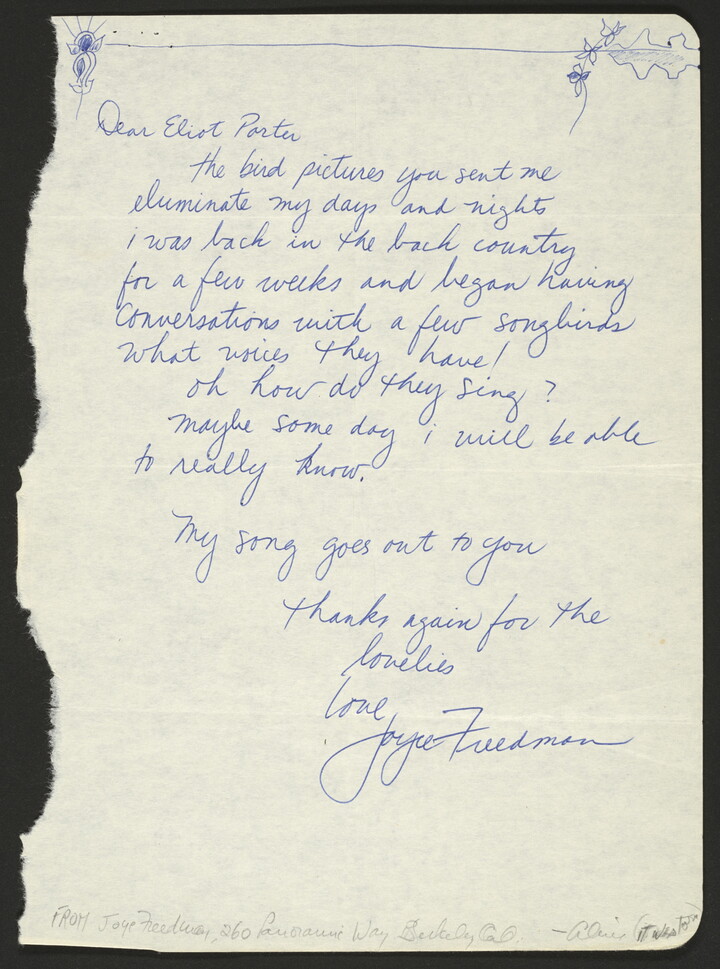 Dear Eliot Porter
the bird pictures you sent me
eluminate my days and nights
i was back in the back country
for a few weeks and began having
conversations with a few songbirds
what voices they have!
oh how do they sing?
maybe some day i will be able
to really know.
My song goes out to you
thanks again for the
lovelies
love
Joyce Freedman
FROM Joyce Freedman, 260 Panoramic Way Berkeley Cal.